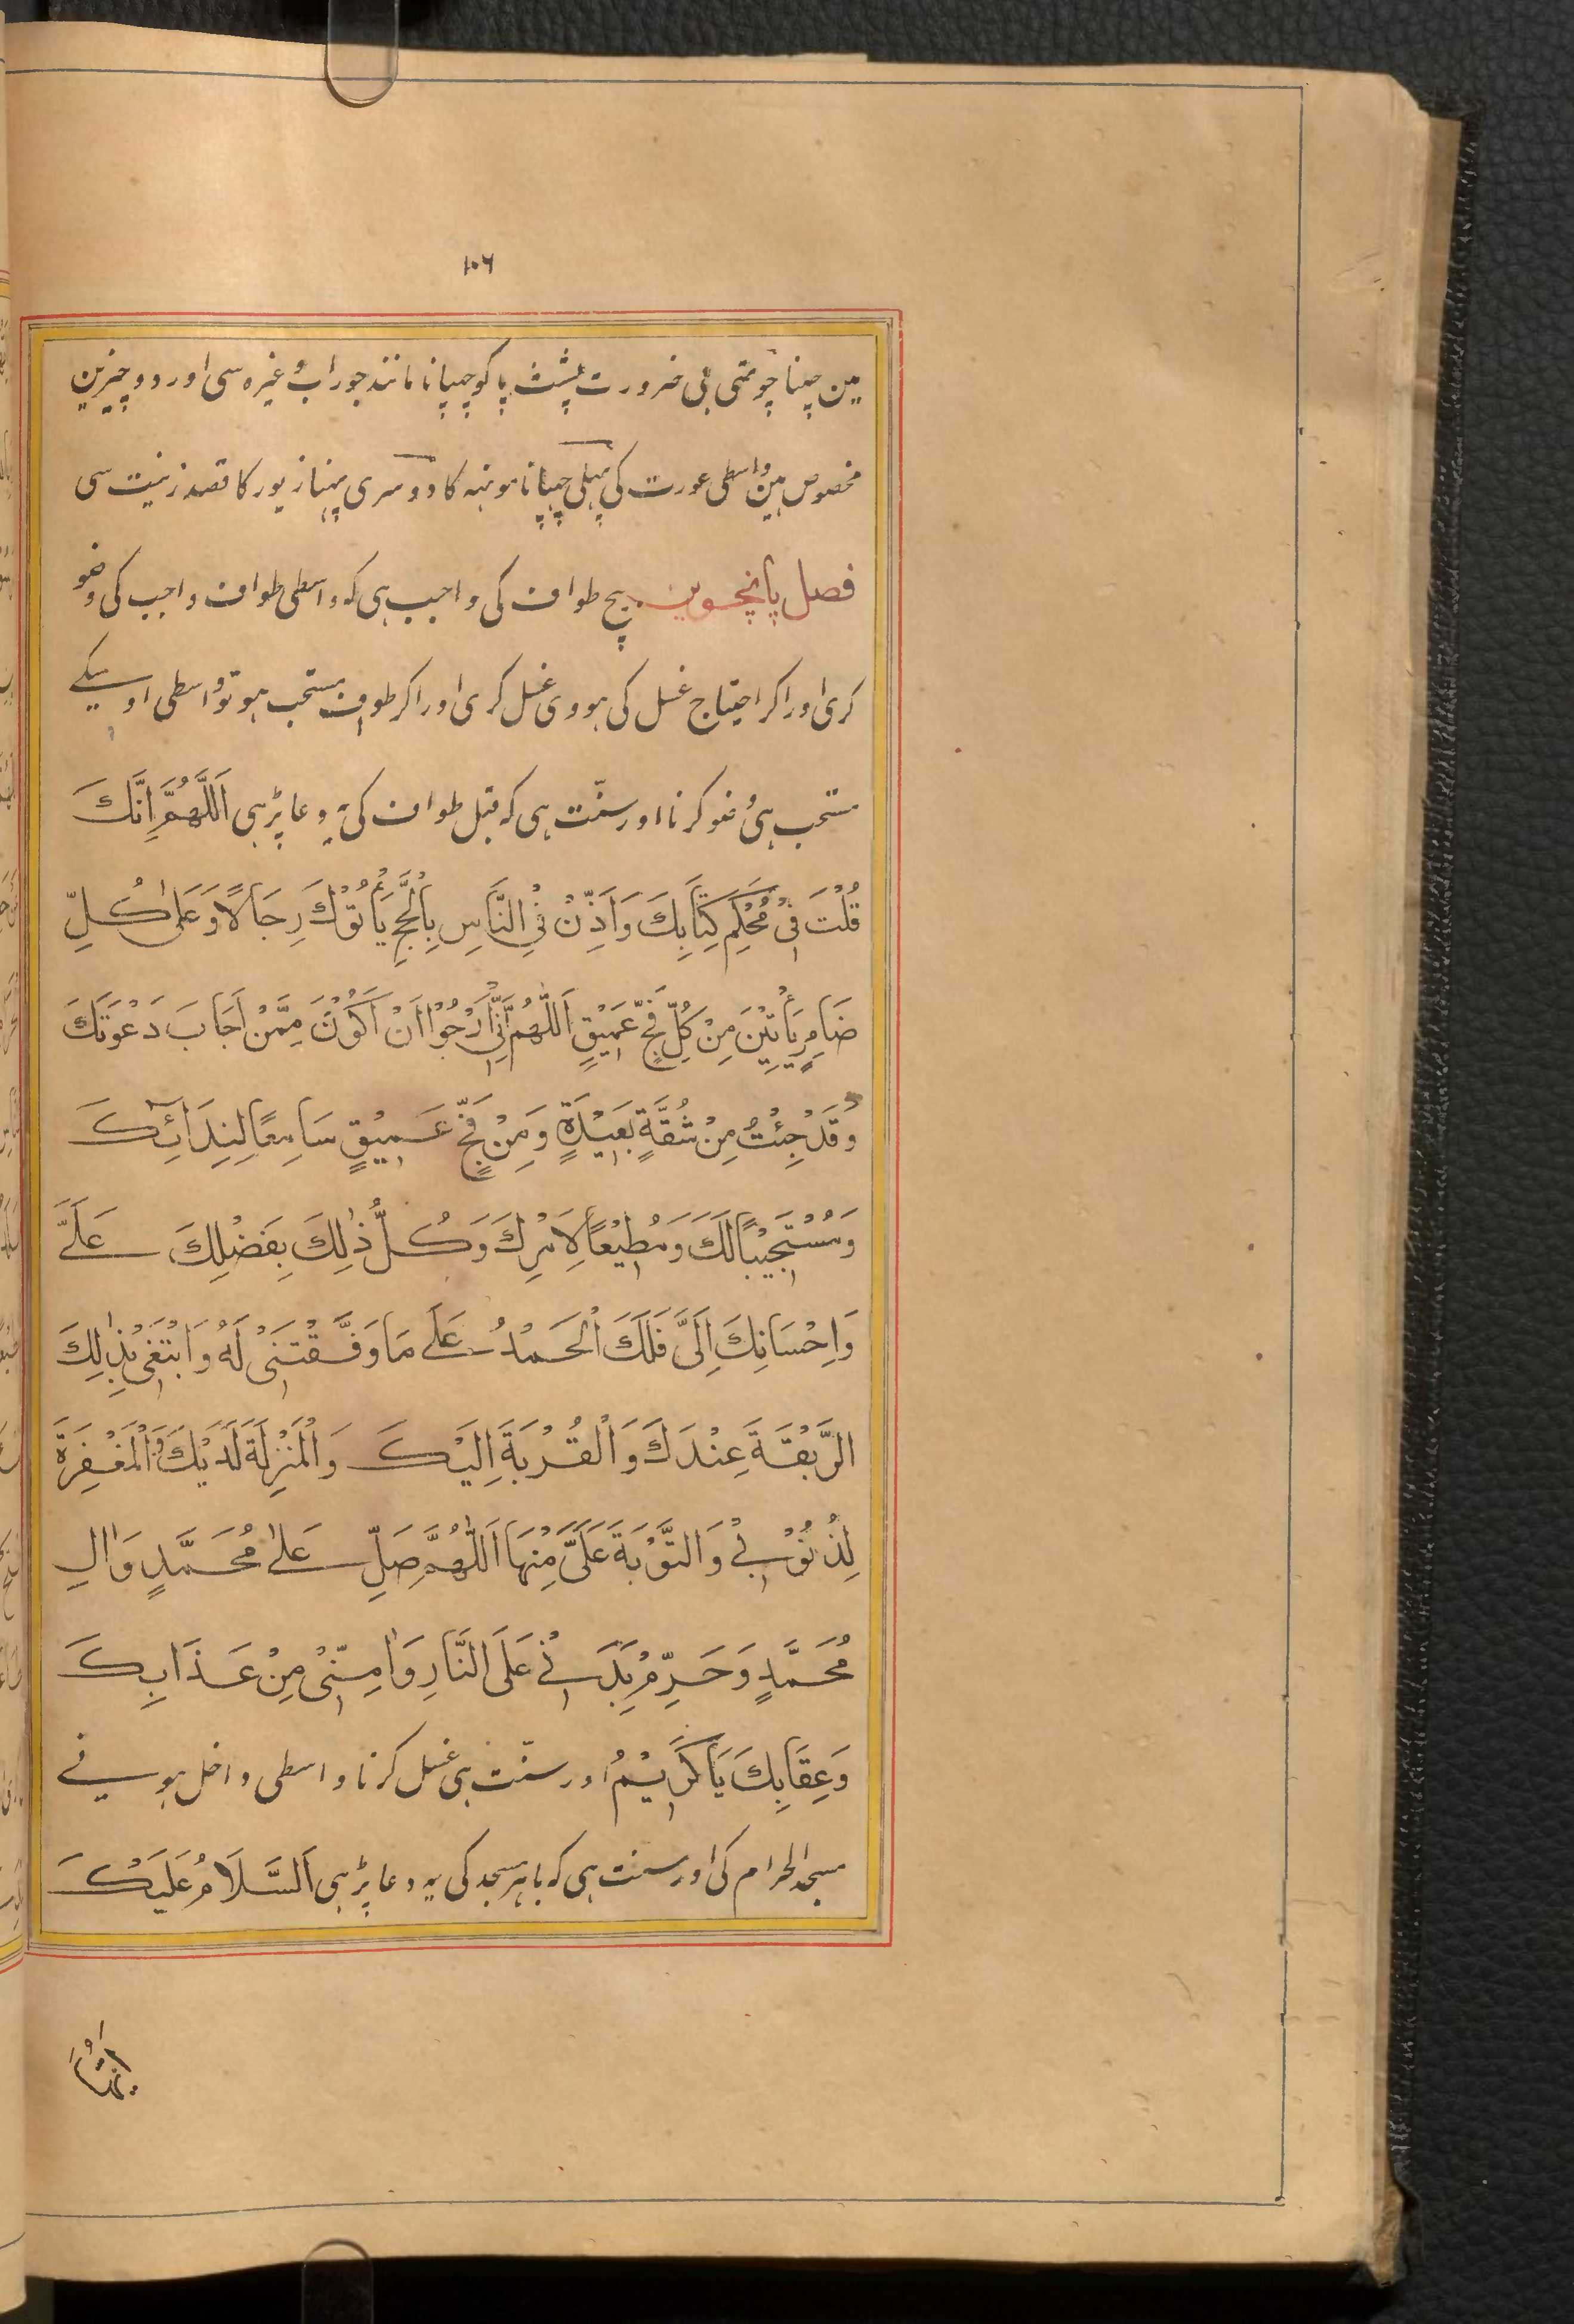 ۱۰۶
مین چہنا چوتھی بی ضرورت پشت پا کو چہپانا مانند جوراب وغیرہ سی اور دو چیزین
مخصوص ہین واسطی عورت کی پہلی چہپانا مونہہ کا دوسری پہننا زیور کا قصد زینت سی
فصل پانچوین بیچ طواف کی واجب ہی کہ واسطی طواف واجب کی وضو
کری اور اکر احتیاج غسل کی ہووی غسل کری اور اکر طواف مستحب ہو تو واسطی اوسیکے
مستحب ہی وضو کرنا اور سنّت ہی کہ قبل طواف کی یہ دعا پڑہی اَللَّهُمَّ اِنَّكَ
قُلْتَ فِیْ مُحْكَمِ كِتَابِكَ وَاَذِّنْ فِی النَّاسِ بِالْحَجِّ يَأْتُوْكَ رِجَالًا وَعَلٰی كُلِّ
ضَامِرٍ يَأْتِيْنَ مِنْ كُلِّ فَجٍّ عَمِيْقٍ اَللّٰهُمَّ اِنِّیْ اَرْجُوْا اَنْ اَكُوْنَ مِمَّنْ اَجَابَ دَعْوَتَكَ
وَقَدْ جِئْتُ مِنْ شُقَّةٍ بَعِيْدَةٍ وَمِنْ فَجٍّ عَمِيْقٍ سَامِعًا لِنِدَائِكَ
وَمُسْتَجِيْبًا لَكَ وَمُطِيْعًا لِاَمْرِكَ وَكُلُّ ذٰلِكَ بِفَضْلِكَ عَلَیَّ
وَاِحْسَانِكَ اِلَیَّ فَلَكَ الْحَمْدُ عَلٰی مَا وَفَّقْتَنِیْ لَهُ وَابْتَغِیْ بِذٰلِكَ
الزَّبْقَةَ عِنْدَكَ وَالْقُرْبَةَ اِلَيْكَ وَالْمَنْزِلَةَ لَدَيْكَ وَالْمَغْفِرَةَ
لِذُنُوْبِیْ وَالتَّوْبَةَ عَلَیَّ مِنْهَا اَللّٰهُمَّ صَلِّ عَلٰی مُحَمَّدٍ وَاٰلِ
مُحَمَّدٍ وَحَرِّمْ بَدَنِیْ عَلَی النَّارِ وَاٰمِنِّیْ مِنْ عَذَابِكَ
وَعِقَابِكَ يَا كَرِيْمُ اور سنّت ہی غسل کرنا واسطی داخل ہونے
مسجد الحرام کی اور سنت ہی کہ باہر مسجد کی یہ دعا پڑہی اَلسَّلَامُ عَلَيْكَ